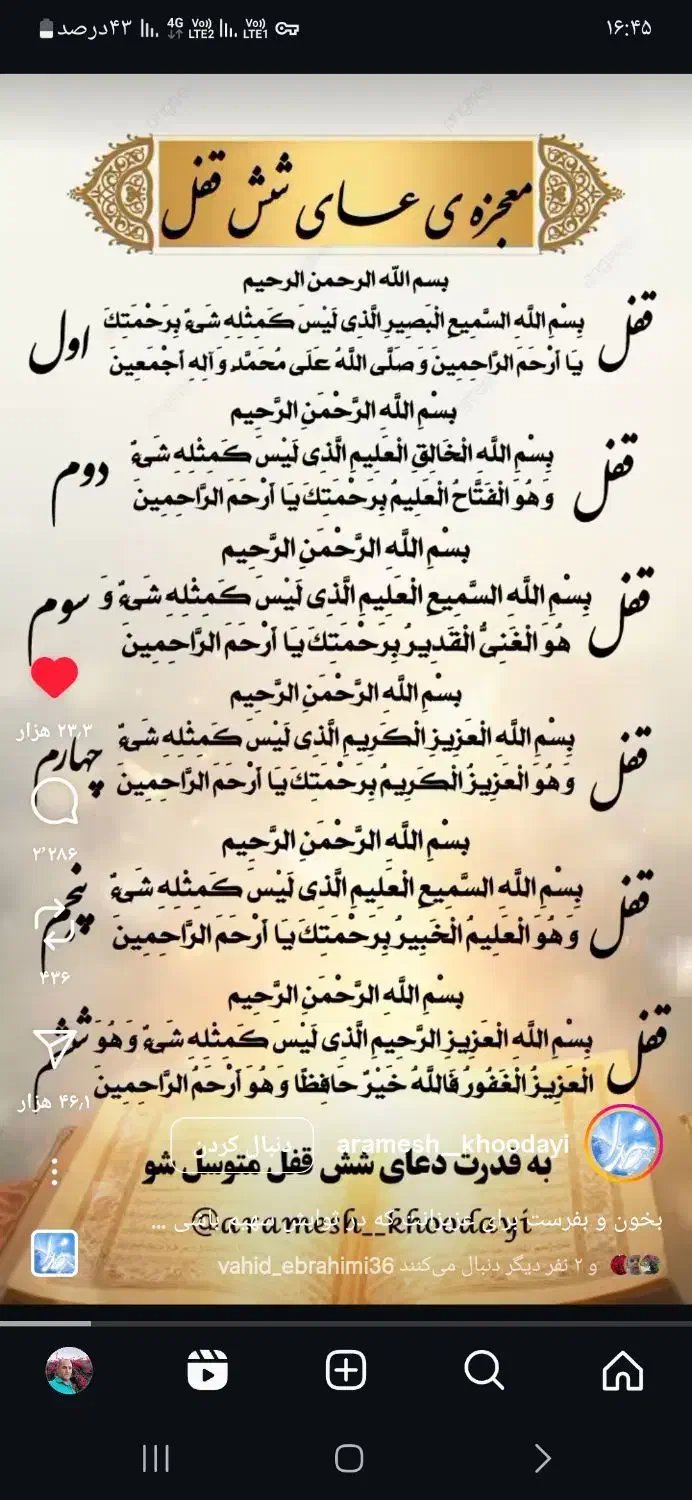 ۱۶:۴۵
VoLTE1 VoLTE2 4G ۴۳درصد
معجزه ی عای شش قفل
بسم الله الرحمن الرحیم
قفل اول
بِسْمِ اللَّهِ السَّمیعِ الْبَصیرِ الَّذی لَیْسَ کَمِثْلِهِ شَیءٌ بِرَحْمَتِكَ
یَا أرْحَمَ الرَّاحِمینَ وَ صَلَّی اللَّهُ عَلَی مُحَمَّدٍ وَ آلِهِ أجْمَعینَ
بِسْمِ اللَّهِ الرَّحْمَنِ الرَّحیمِ
قفل دوم
بِسْمِ اللَّهِ الْخَالِقِ الْعَلیمِ الَّذی لَیْسَ کَمِثْلِهِ شَیءٌ
وَ هُوَ الْفَتَّاحُ الْعَلیمُ بِرَحْمَتِكَ یَا أرْحَمَ الرَّاحِمینَ
بِسْمِ اللَّهِ الرَّحْمَنِ الرَّحیمِ
قفل سوم
بِسْمِ اللَّهِ السَّمیعِ الْعَلیمِ الَّذی لَیْسَ کَمِثْلِهِ شَیءٌ وَ
هُوَ الْغَنِیُّ الْقَدیرُ بِرَحْمَتِكَ یَا أرْحَمَ الرَّاحِمینَ
بِسْمِ اللَّهِ الرَّحْمَنِ الرَّحیمِ
۲۳٫۳ هزار
قفل چهارم
بِسْمِ اللَّهِ الْعَزیزِ الْکَریمِ الَّذی لَیْسَ کَمِثْلِهِ شَیءٌ
وَ هُوَ الْعَزیزُ الْکَریمُ بِرَحْمَتِكَ یَا أرْحَمَ الرَّاحِمینَ
بِسْمِ اللَّهِ الرَّحْمَنِ الرَّحیمِ
۳٬۲۸۶
قفل پنجم
بِسْمِ اللَّهِ السَّمیعِ الْعَلیمِ الَّذی لَیْسَ کَمِثْلِهِ شَیءٌ
وَ هُوَ الْعَلیمُ الْخَبیرُ بِرَحْمَتِكَ یَا أرْحَمَ الرَّاحِمینَ
۴۳۶
بِسْمِ اللَّهِ الرَّحْمَنِ الرَّحیمِ
قفل ششم
بِسْمِ اللَّهِ الْعَزیزِ الرَّحیمِ الَّذی لَیْسَ کَمِثْلِهِ شَیءٌ وَ هُوَ
الْعَزیزُ الْغَفُورُ فَاللَّهُ خَیْرٌ حَافِظًا وَ هُوَ أرْحَمُ الرَّاحِمینَ
۴۶٫۱ هزار
aramesh__khoodayi دنبال کردن
به قدرت دعای شش قفل متوسل شو
بخون و بفرست برای عزیزانت که در ثوابش سهیم باشی ...
@aramesh__khoodayi
vahid_ebrahimi36 و ۲ نفر دیگر دنبال می‌کنند